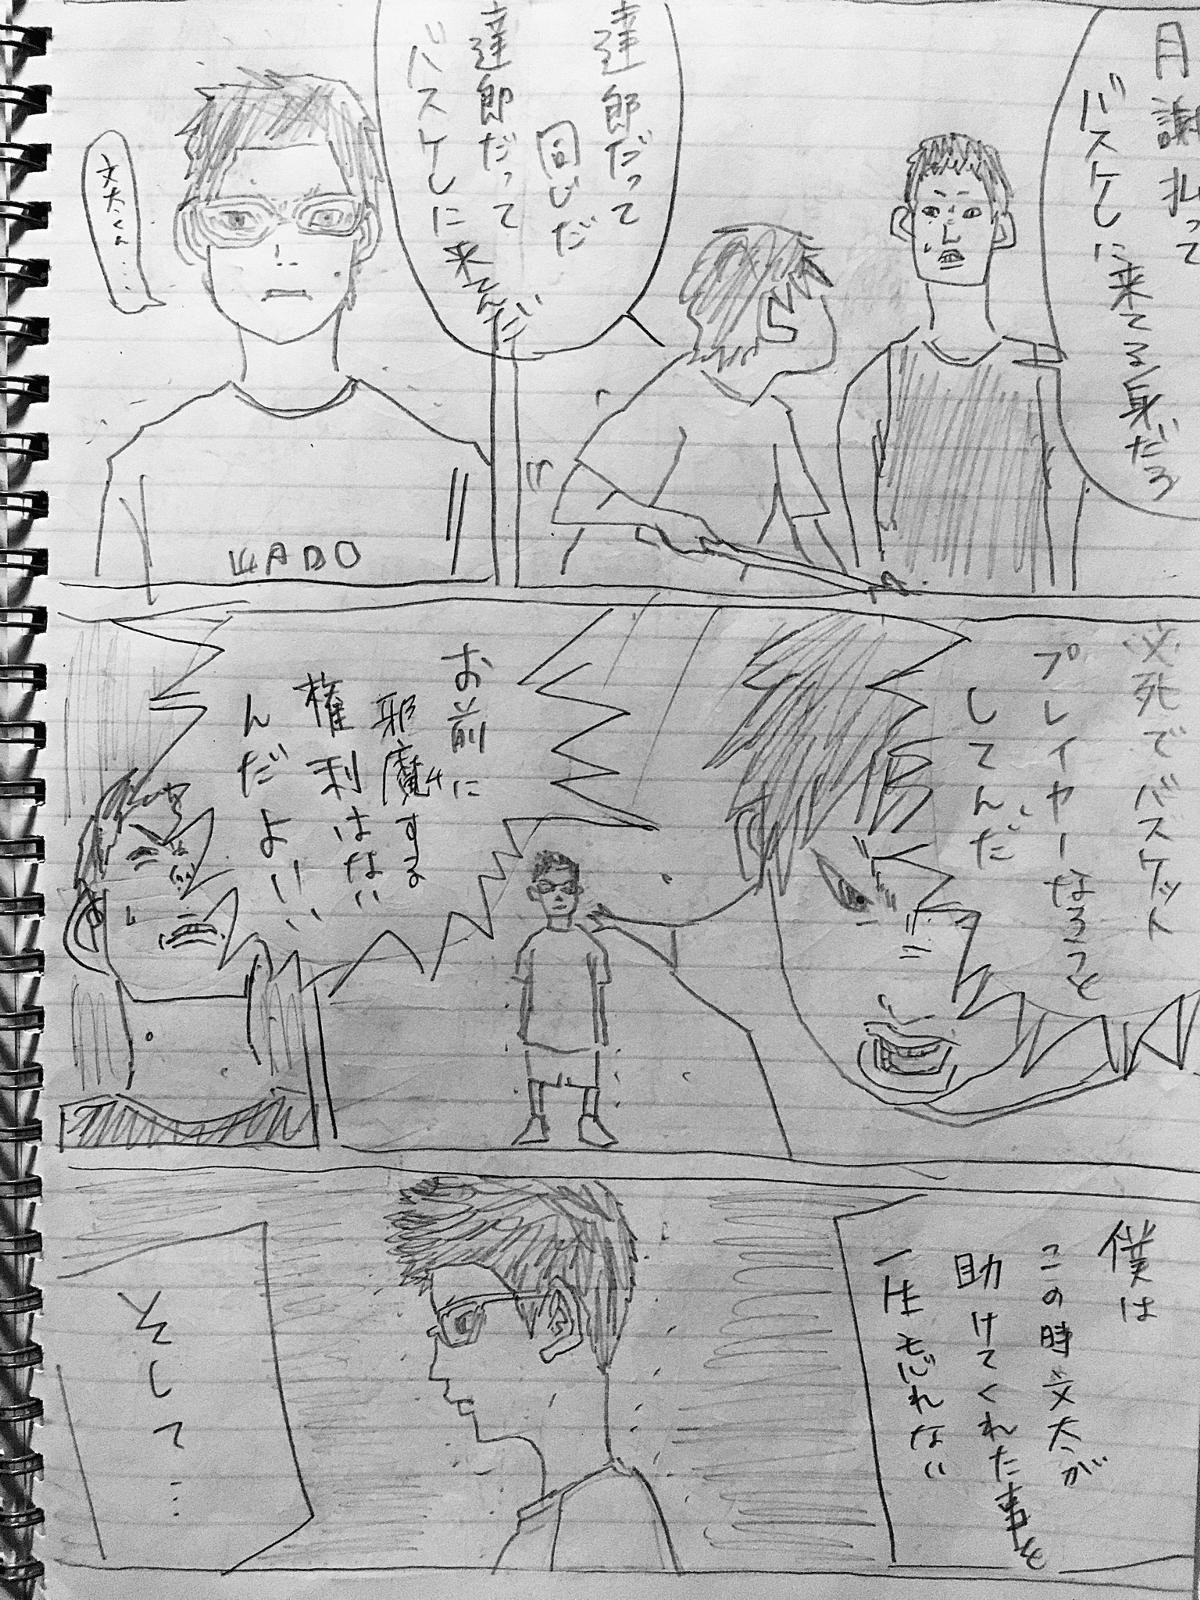 月謝払って
バスケしに来てる身だろ
達郎だって
同じだ
達郎だって
バスケしに来てんだ
文太くん…
KADO
必死でバスケット
プレイヤーなろうと
してんだ
お前に
邪魔する
権利はない
んだよ!!
僕は
この時文太が
助けてくれた事を
一生忘れない
そして…